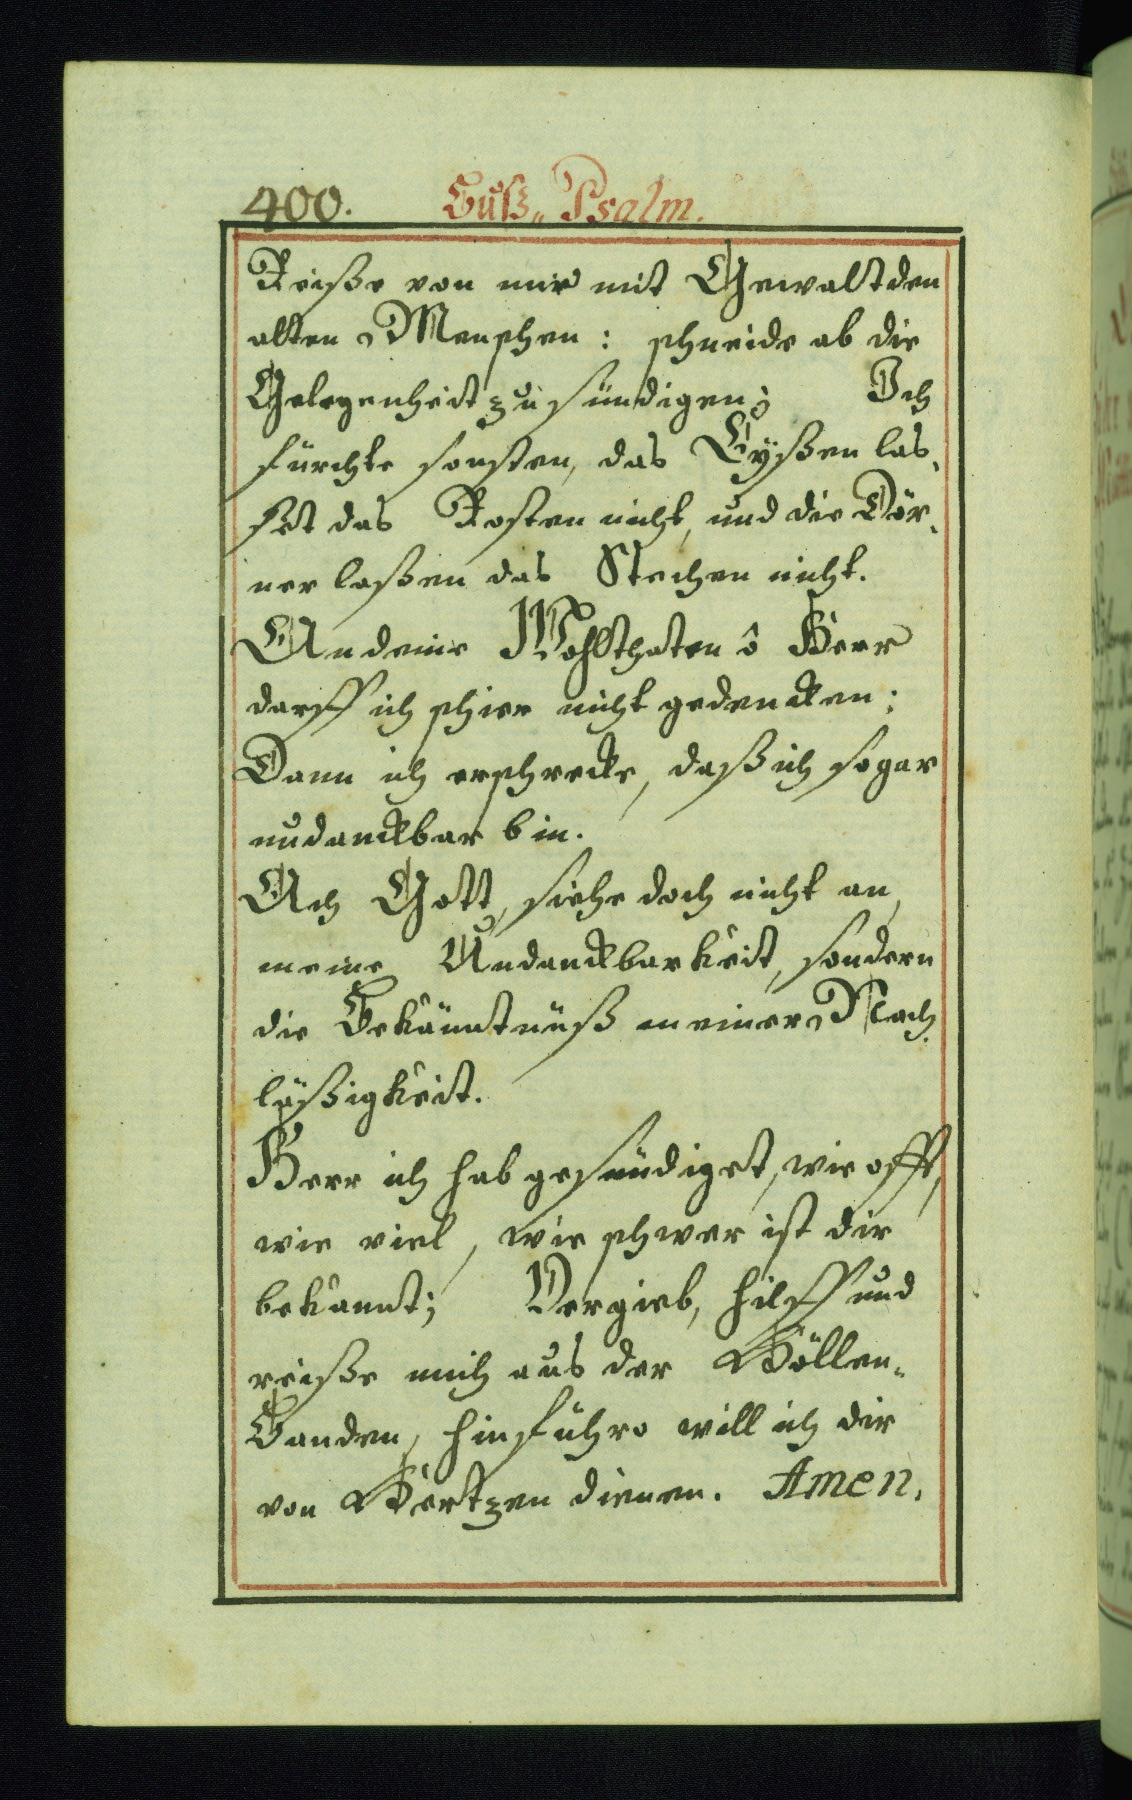 400. Buß„ Psalm.
Reiße von mir mit Gewalt den
alten Menschen: schneide ab die
Gelegenheit zu sündigen; Ich
fürchte sonsten, das Eyßen las„
set das Rosten nicht, und die Dör„
ner laßen das Stechen nicht.
An deine Wohlthaten ô Herr
darff ich schier nicht gedencken;
Dann ich erschrecke, daß ich sogar
undanckbar bin.
Ach Gott, siehe doch nicht an,
meine Undanckbarkeit, sondern
die Bekänntnüß meiner Nach„
läßigkeit.
Herr ich hab gesündiget, wie offt,
wie viel, wie schwer ist dir
bekannt; Vergieb, hilff und
reiße mich aus der Höllen„
Banden, hinführo will ich dir
von Hertzen dienen. Amen.